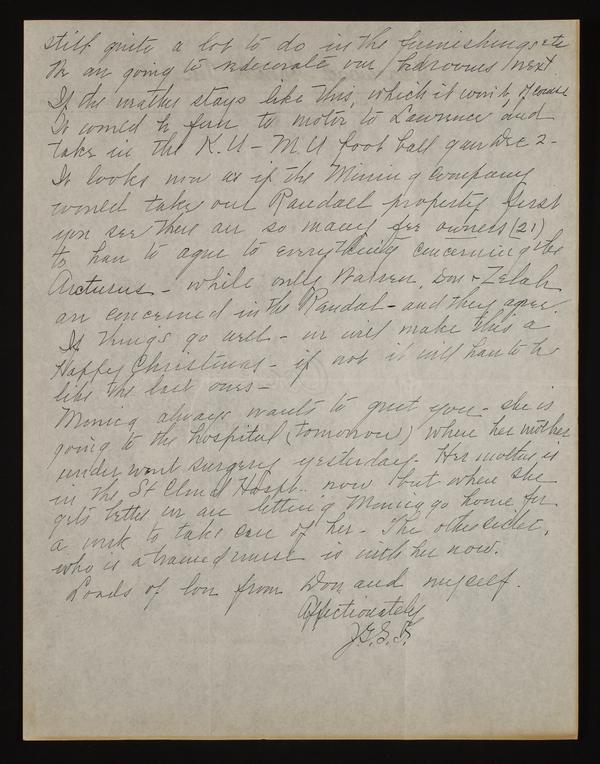 still quite a lot to do in the furnishings etc
We are going to redecorate our bedrooms next.
If the weather stays like this, which it won't, of course
It would be fun to motor to Lawrence and
take in the K.U - M.U foot ball game Dec 2-
It looks now as if the Mining Company
would take our Randall property first
you see there are so many fee owners (21)
to have to agree to everything concerning the
Arcturus - while only Warren, Don & Zelah
are concerned in the Randal - and they agree.
If things go well - we will make this a
Happy Christmas - if not it will have to be
like the last ones -
Monica always wants to greet you - she is
going to the hospital (tomorrow) where her mother
under went surgery yesterday. Her mother is
in the St Hospt. now but when she
gets better we are letting Monica go home for
a week to take care of her - The other sister,
who is a trained nurse is with her now.
Loads of love from Don and myself.
Affectionately